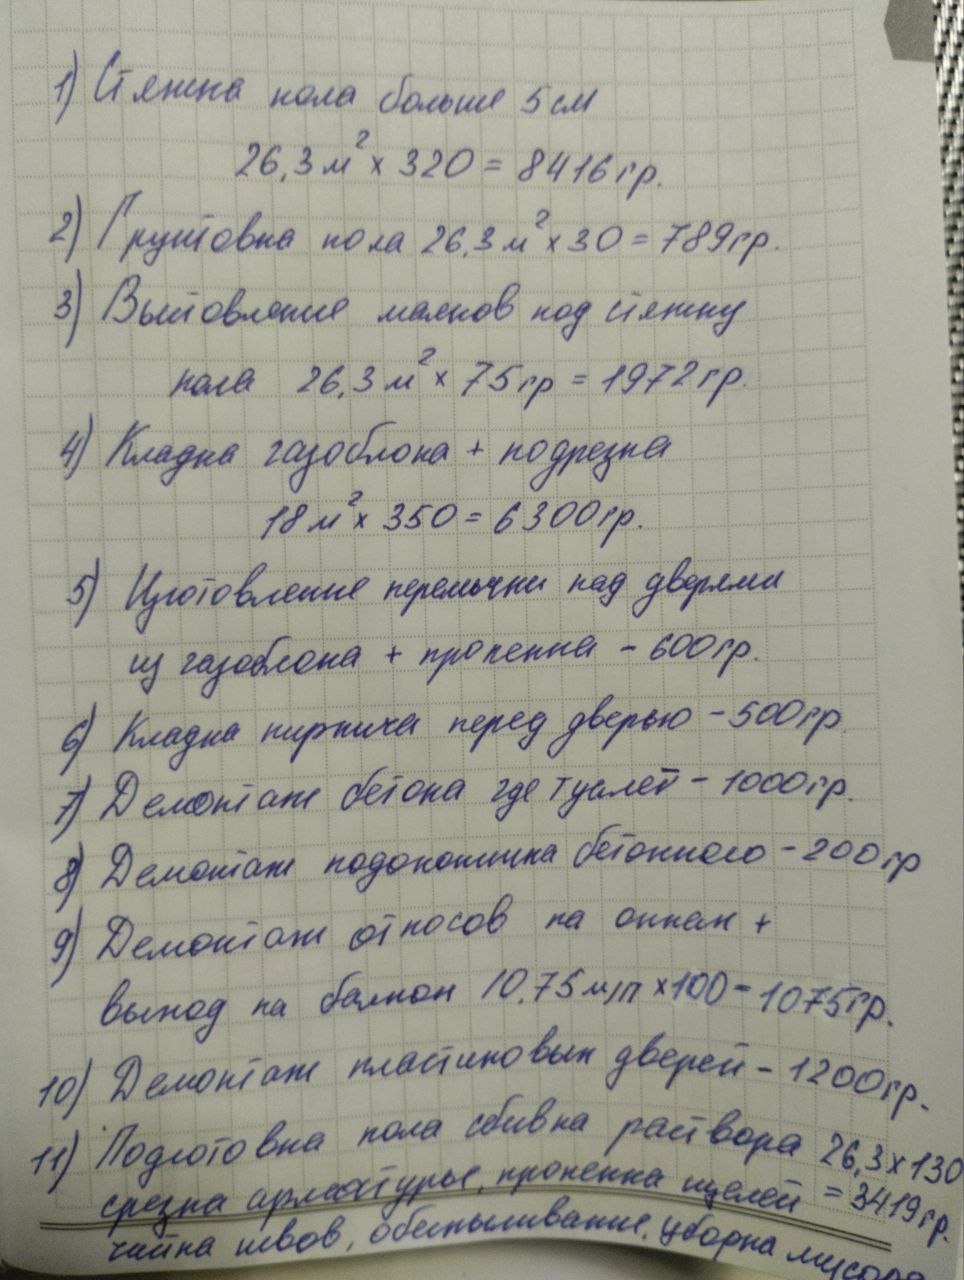 1) Стяжка пола больше 5см
26,3м² x 320 = 8416гр.
2) Грунтовка пола 26,3м² x 30 = 789гр.
3) Выставление маяков под стяжку
пола 26,3м² x 75гр = 1972гр.
4) Кладка газоблока + подрезка
18м² x 350 = 6300гр.
5) Изготовление перемычки над дверями
из газоблока + пропенка - 600гр.
6) Кладка кирпича перед дверью - 500гр.
7) Демонтаж бетона где туалет - 1000гр.
8) Демонтаж подоконника бетонного - 200гр
9) Демонтаж откосов на окнах +
выход на балкон 10,75м/п x 100 = 1075гр.
10) Демонтаж пластиковых дверей - 1200гр.
11) Подготовка пола сбивка раствора 26,3 x 130
срезка арматуры, пропенка щелей = 3419гр.
швов, обеспыливание, уборка мусора